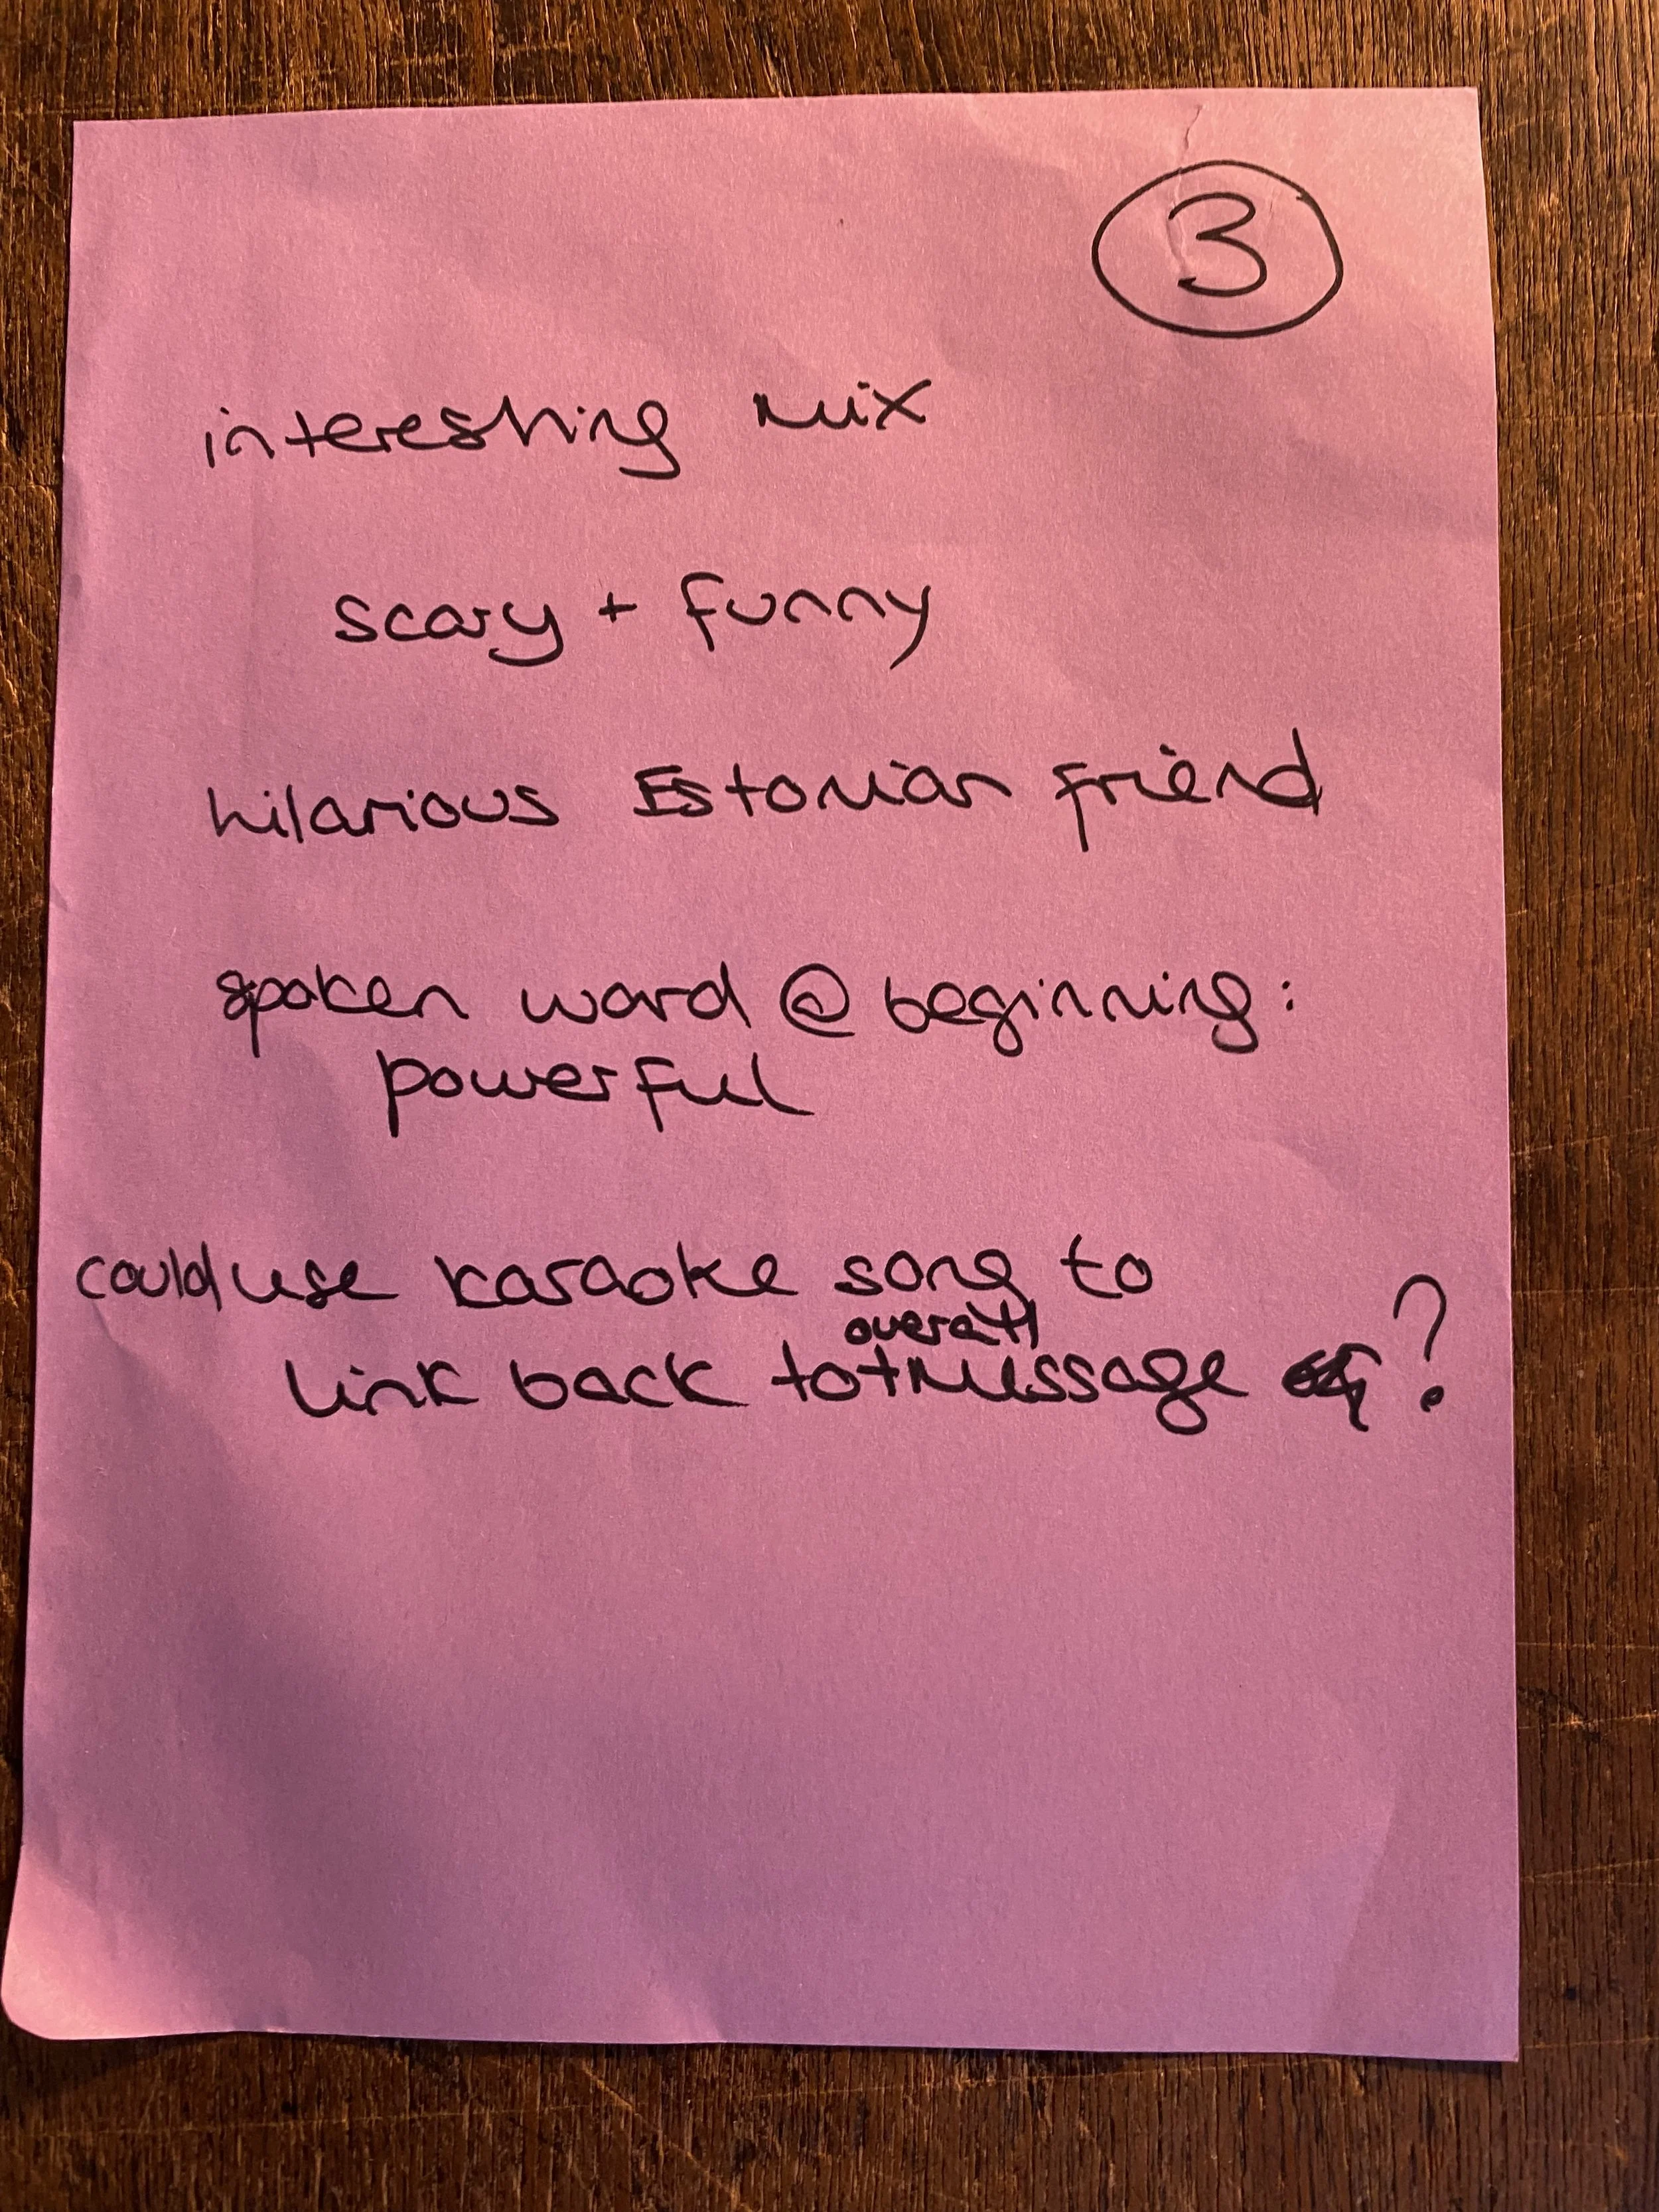 3
interesting mix
scary + funny
hilarious Estonian friend
spoken word @ beginning:
powerful
could use karaoke song to
overall
link back to message ?